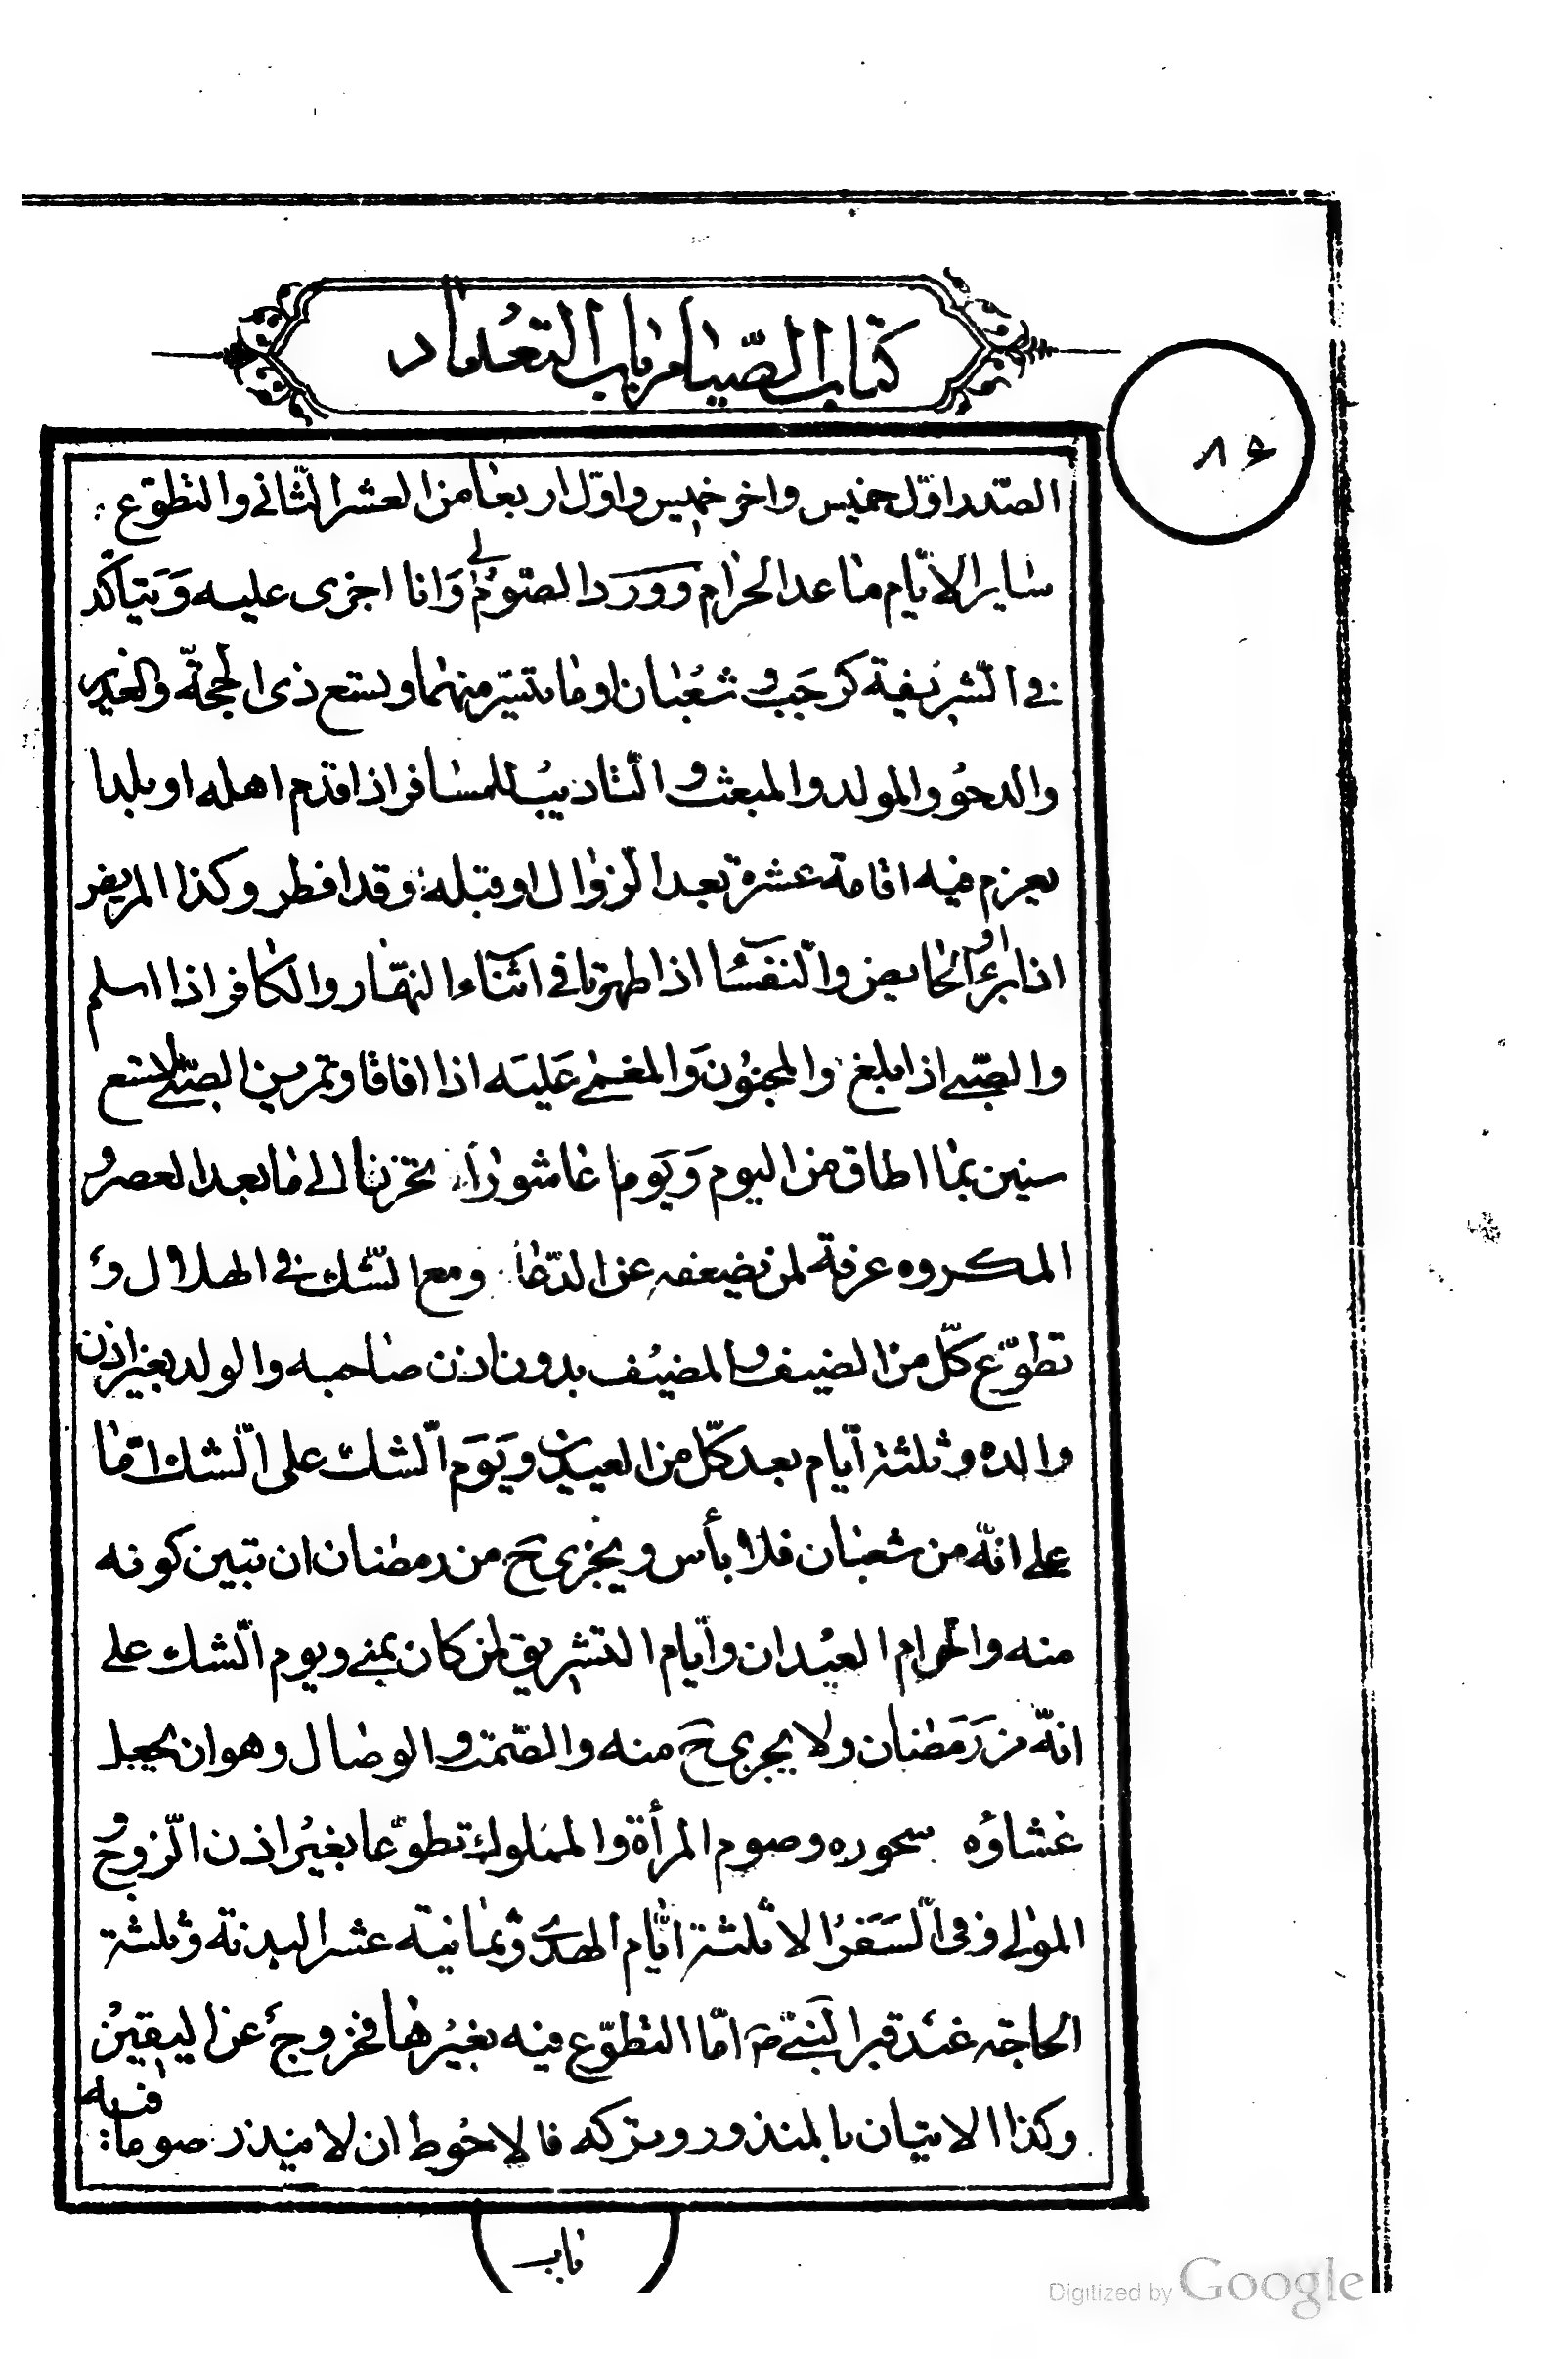 كتاب الصيام باب التعداد
٨٤
الصدر اوّل خميس واخر خميس واوّل اربعا من العشر الثانى والتطوّع
ساير الايّام ما عدا الحرام وورد الصّوم لى وَانا اجزى عليه وَيَتاكّد
فى الشريفة كرجَب وشعبان او ما تيسّر منهما وتسع ذى الحجّة والغدير
والدحوُ والمولد والمبعث والتاديب للمسافر اذا قدم اهله او بلدا
يعزم فيه اقامة عشرة بعد الزوال او قبله وقد افطر وكذا المريض
اذا برء او الحايض والنفسا اذا طهرتا فى اثناء النهار والكافر اذا اسلم
والصبى اذا بلغ والمجنون وَالمغمى عَليَه اذا افاقا وتمرين الصبى لتسع
سنين بما اطاق من اليوم وَيَوم عاشورا تحزنا الى ما بعد العصر و
المكروه عرفة لمن يضعفه عن الدعا ومع الشك فى الهلال و
تطوّع كلّ من الضيف والمضيف بدون اذن صاحبه والولد بغير اذن
والده وثلثة ايّام بعد كلّ من العيدين ويَوَم الشك على الشك امّا
على انّه من شعبان فلا بأس ويجزى ح من رمضان ان تبين كونه
منه والحرام العيدان وايّام التشريق لمن كان بمنى ويوم الشك على
انّه من رَمَضان ولا يجزى ح منه والصّمت والوصال وهو ان يجعل
عشاؤه سحوره وصوم المرأة والمملوك تطوّعا بغير اذن الزوج و
المولى وفى السَفر الا ثلثة ايّام الهدى وثمانية عشر البدنة وثلثة
الحاجة عند قبر النبى ص امّا التطوّع فيه بغيرها فخروج عن اليقين
وكذا الاتيان بالمنذور وتركه فالاحوط ان لا ينذر صوما فيه
باب
Digitized by Google